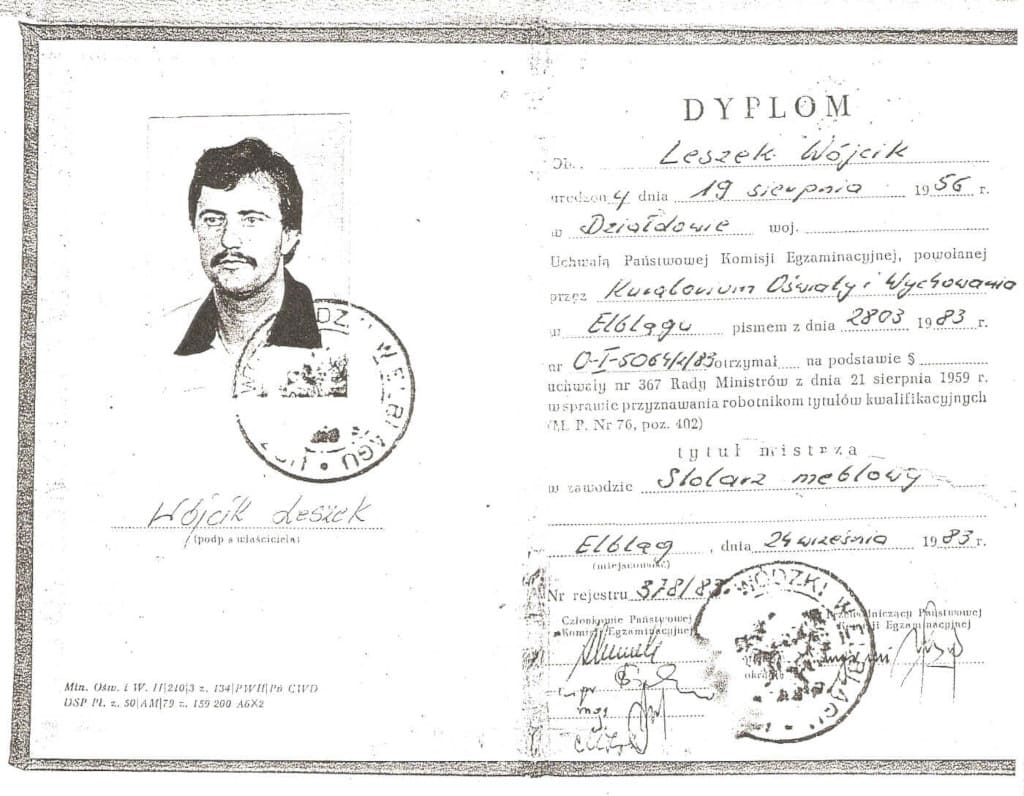 Wójcik Leszek
(podpis właściciela)
Min. Ośw. i W. II|210|3 z. 134|PWH|Pń CWD
DSP Pł. z. 50|AM|79 z. 159 200 A6X2
DYPLOM
Ob. Leszek Wójcik
urodzony dnia 19 sierpnia 1956 r.
w Działdowie woj.
Uchwałą Państwowej Komisji Egzaminacyjnej, powołanej
przez Kuratorium Oświaty i Wychowania
w Elblągu pismem z dnia 2803 1983 r.
nr O-I-5064/1/83 otrzymał na podstawie §
uchwały nr 367 Rady Ministrów z dnia 21 sierpnia 1959 r.
w sprawie przyznawania robotnikom tytułów kwalifikacyjnych
(M. P. Nr 76, poz. 402)
tytuł mistrza
w zawodzie Stolarz meblowy
Elbląg, dnia 24 września 1983 r.
(miejscowość)
Nr rejestru 378/83
Członkowie Państwowej
Komisji Egzaminacyjnej
Przewodniczący Państwowej
Komisji Egzaminacyjnej
W ELBLĄGU
WÓDZKI W ELBLĄGU